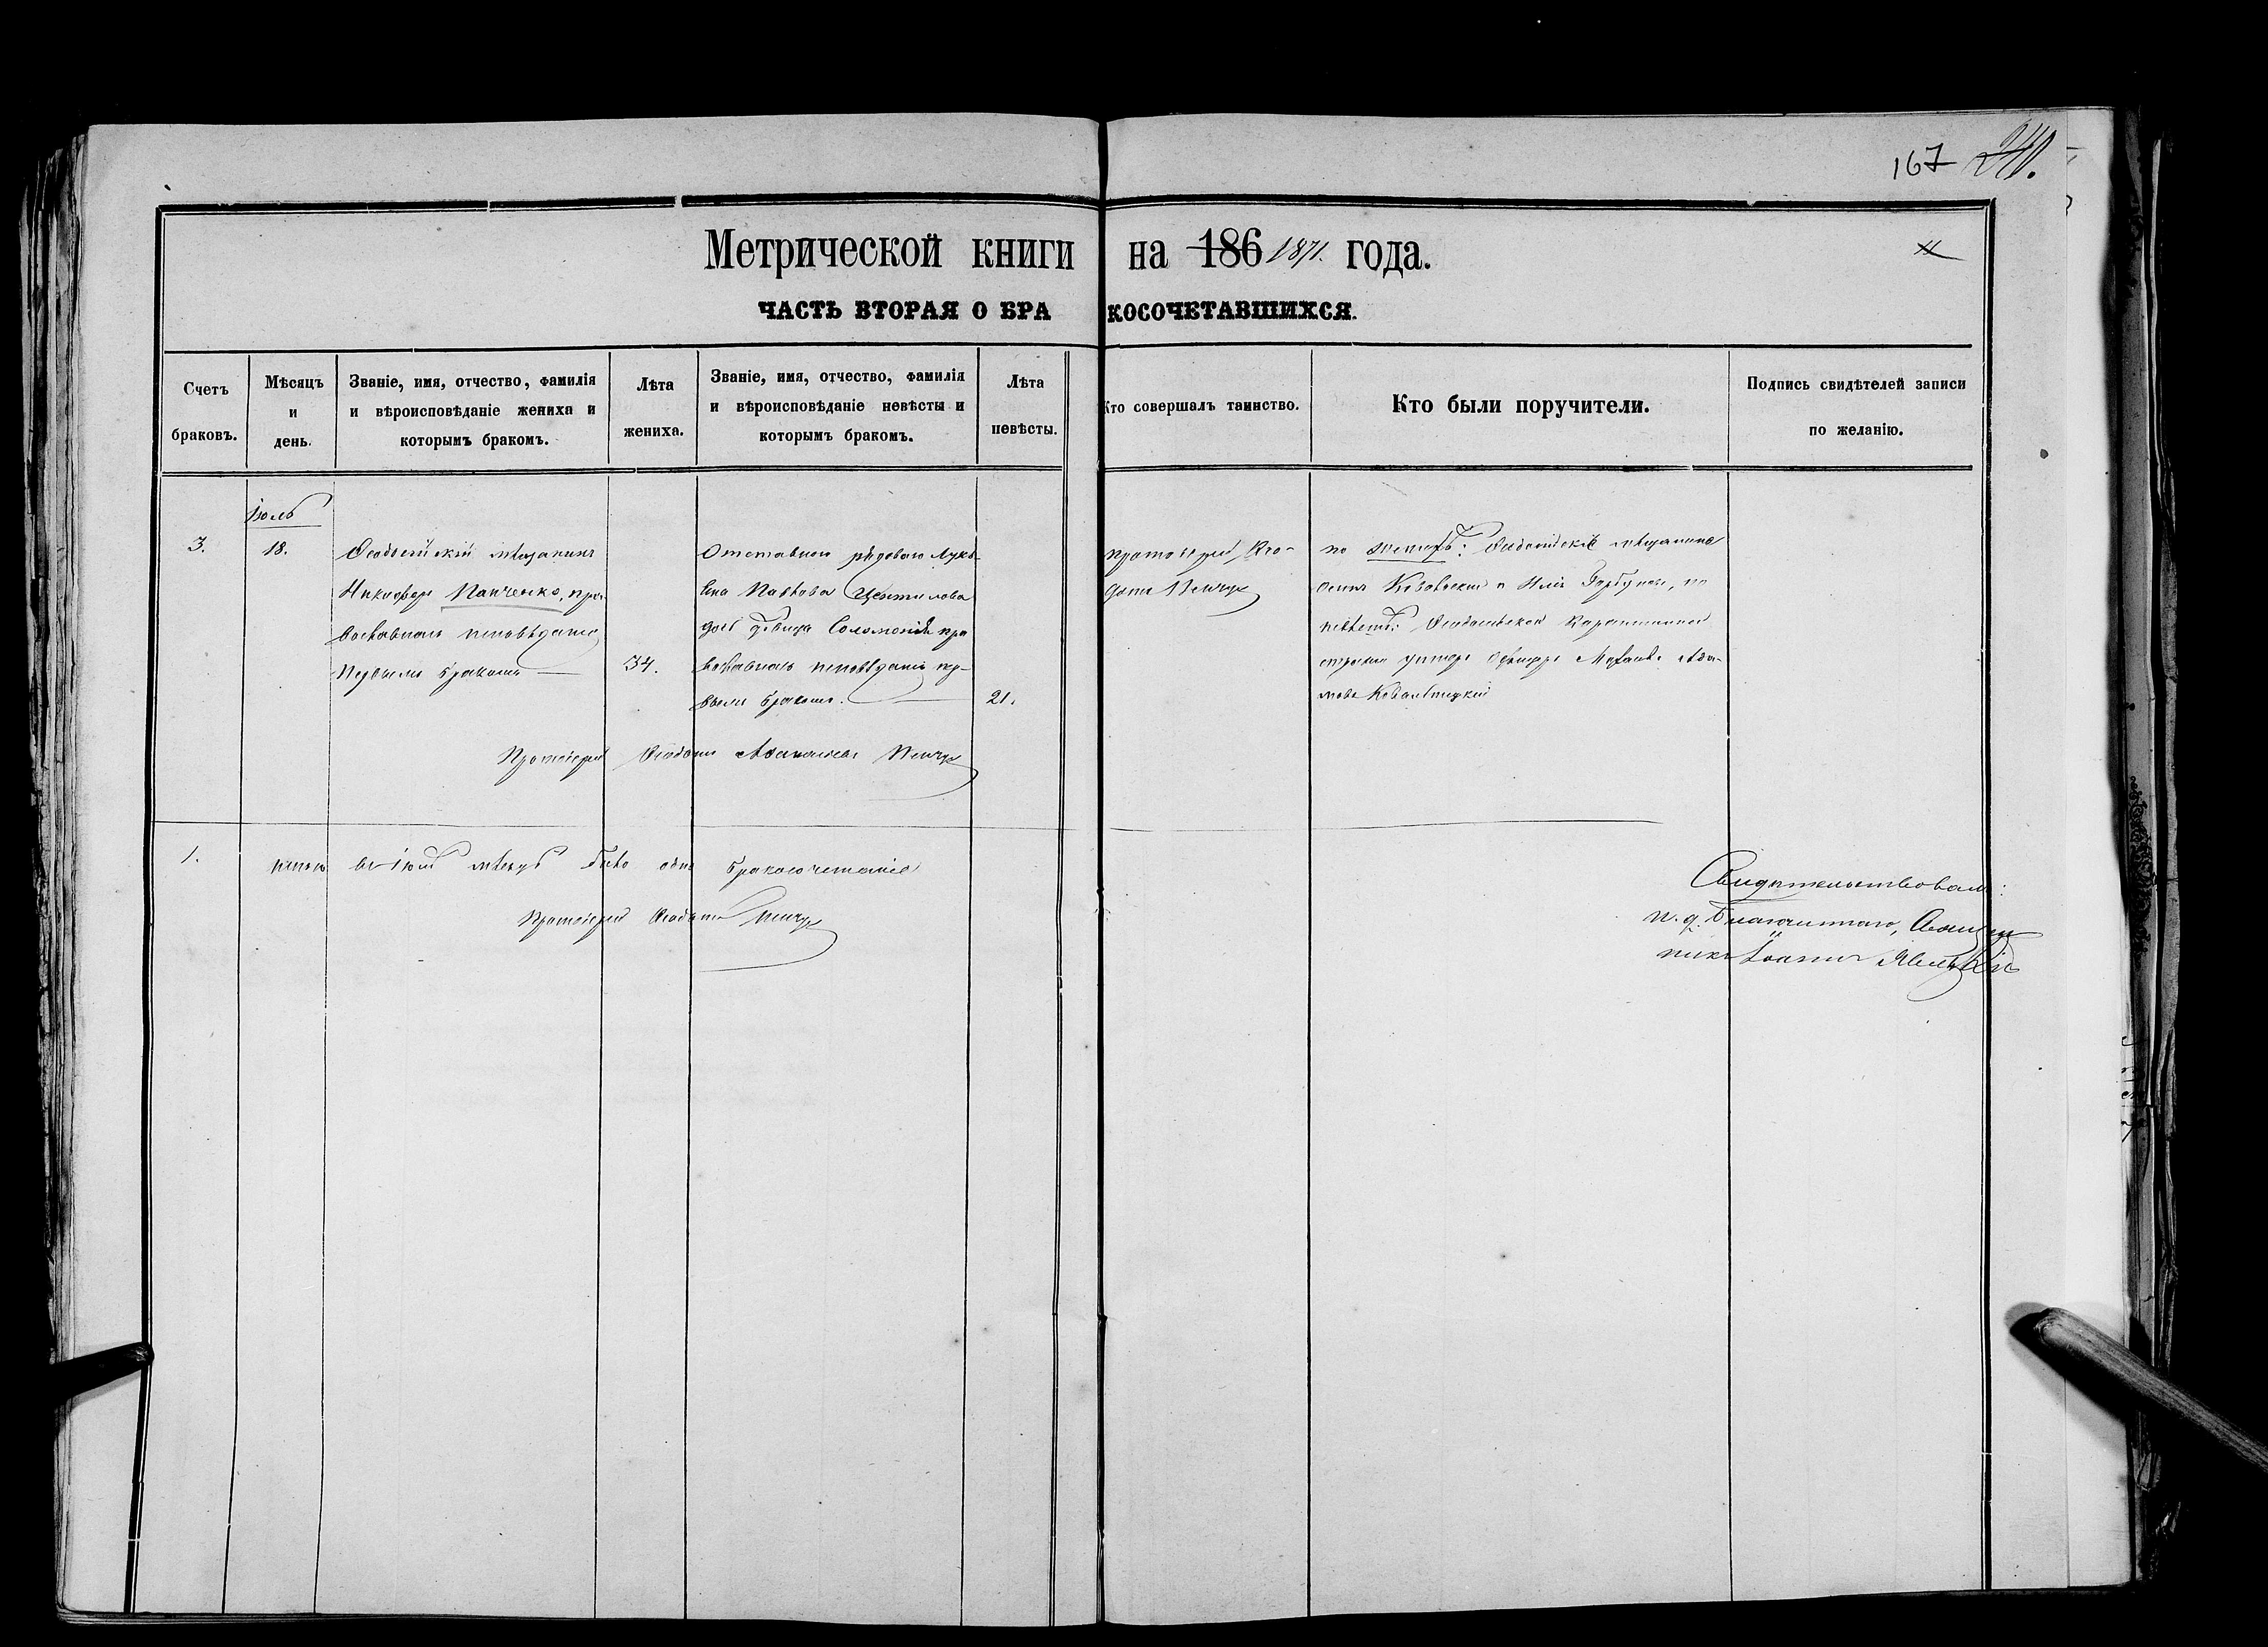 167 240.
Метрической книги на 186 1871. года.
ЧАСТЬ ВТОРАЯ О БРАКОСОЧЕТАВШИХСЯ.
Счетъ браковъ.
Мѣсяцъ и день.
Званіе, имя, отчество, фамилія
и вѣроисповѣданіе жениха и
которымъ бракомъ.
Лѣта жениха.
Званіе, имя, отчество, фамилія
и вѣроисповѣданіе невѣсты и
которымъ бракомъ.
Лѣта невѣсты.
Кто совершалъ таинство.
Кто были поручители.
Подпись свидѣтелей записи
по желанію.
Іюль
3.
18.
Ѳеодосійскій мѣщанинъ
Никифоръ Панченко, пра-
вославнаго исповѣданія
первымъ бракомъ
34.
Отставнаго рядоваго Лукь-
яна Павлова
дочь дѣвица Соломонія пра
вославнаго исповѣданія пер-
вымъ бракомъ.
21.
Протоіерей Ѳео-
дотъ
по женихѣ: Ѳеодосійскіе мѣщанине
Осипъ и Илія Горбуновъ, по
невѣстѣ: Ѳеодосійской Карантинной
стражи унтеръ офицеръ
Протоіерей Ѳеодотъ
1.
Итого въ Іюлѣ мѣсяцѣ было одно бракосочетаніе
Протоіерей Ѳеодотъ
Свидѣтельствовалъ:
и. д. Благочиннаго, Священ
никъ Іоаннъ